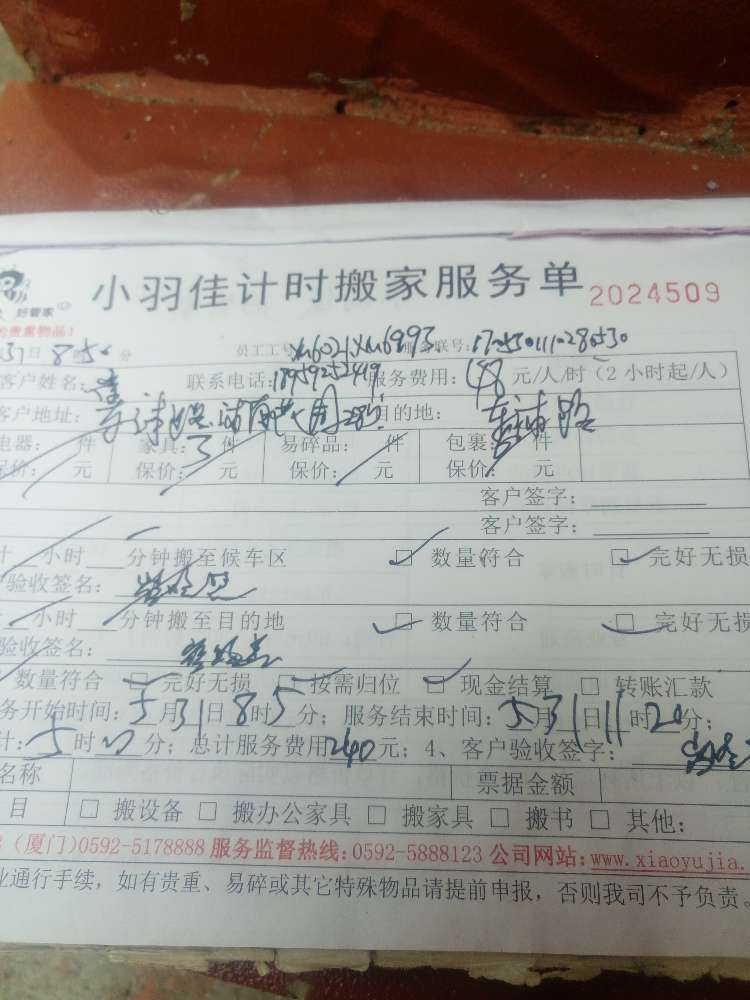 小羽佳计时搬家服务单 2024509
好管家
贵重物品!
31日 8 5 分 员工工号 xm6021 xm6993 服务联号:
客户姓名: 联系电话:18959252419 服务费用:48 元/人/时(2小时起/人)
客户地址: 目的地:
电器: 件 家具:3 件 易碎品: 件 包裹: 件
保价: 元 保价: 元 保价: 元 保价: 元
客户签字:
客户签字:
计 小时 分钟搬至候车区 ☑ 数量符合 ☑ 完好无损
验收签名:
小时 分钟搬至目的地 ☑ 数量符合 ☑ 完好无损
验收签名:
数量符合 ☑ 完好无损 ☑ 按需归位 ☑ 现金结算 □ 转账汇款
务开始时间:5月31日8时5 分; 服务结束时间:5月31日11时20分;
计:5时 分; 总计服务费用240元; 4、客户验收签字:
名称 票据金额
目 □ 搬设备 □ 搬办公家具 □ 搬家具 □ 搬书 □ 其他:
(厦门)0592-5178888 服务监督热线:0592-5888123 公司网站:www.xiaoyujia.
业通行手续,如有贵重、易碎或其它特殊物品请提前申报,否则我司不予负责。